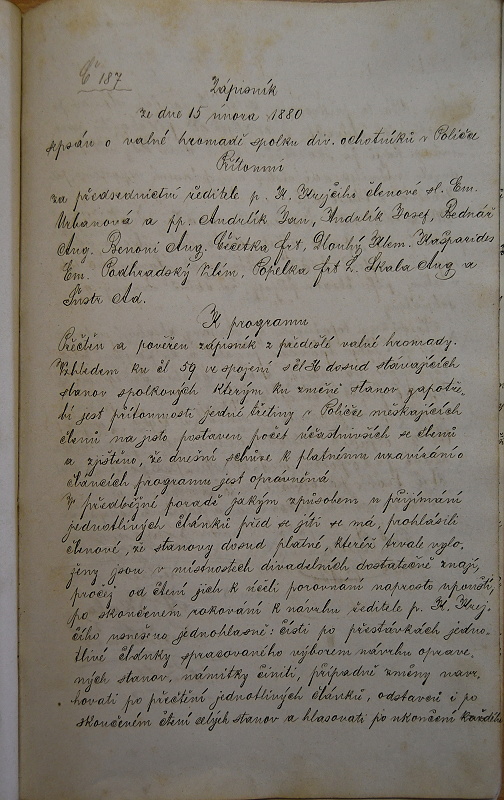 Č 187
Zápisník
ze dne 15 února 1880
sepsán o valné hromadě spolku div. ochotníků v Poličce
Přítomni
za předsednictví ředitele p. K. Krejčího členové sl. Em.
Urbanová a pp. Andrlík Jan, Andrlík Josef, Bednář
Aug. Benoni Aug. Čečetka frt, Dlouhý Klem. Kašparides
Em. Podhradský Vilém, Popelka frt L. Skala Aug a
Šustr Ad.
K programu
Přečtěn a pověřen zápisník z předešlé valné hromady.
Vzhledem ku čl 59 ve spojení s čl 36 dosud stávajících
stanov spolkových kterým ku změně stanov zapotře-
bí jest přítomnosti jedné třetiny v Poličce meškajících
členů na jisto postaven počet účastnivších se členů
a zjištěno, že dnešní schůze k platnému uzavírání o
článcích programu jest oprávněná
V předběžné poradě jakým způsobem u přijímání
jednotlivých článků před se jíti se má, prohlásili
členové, že stanovy dosud platné, kteréž trvale vylo-
ženy jsou v místnostech divadelních dostatečně znají,
pročež od čtení jich k účeli porovnání naprosto upouští,
po skončeném rokování k návrhu ředitele p. K. Krej-
čího usneseno jednohlasně: čísti po přestávkách jedno-
tlivé články spracovaného výborem návrhu oprave-
ných stanov, námitky činiti, případné změny navr-
hovati po přečtění jednotlivých článků, odstavců i po
skončeném čtení celých stanov a hlasovati po ukončení každého